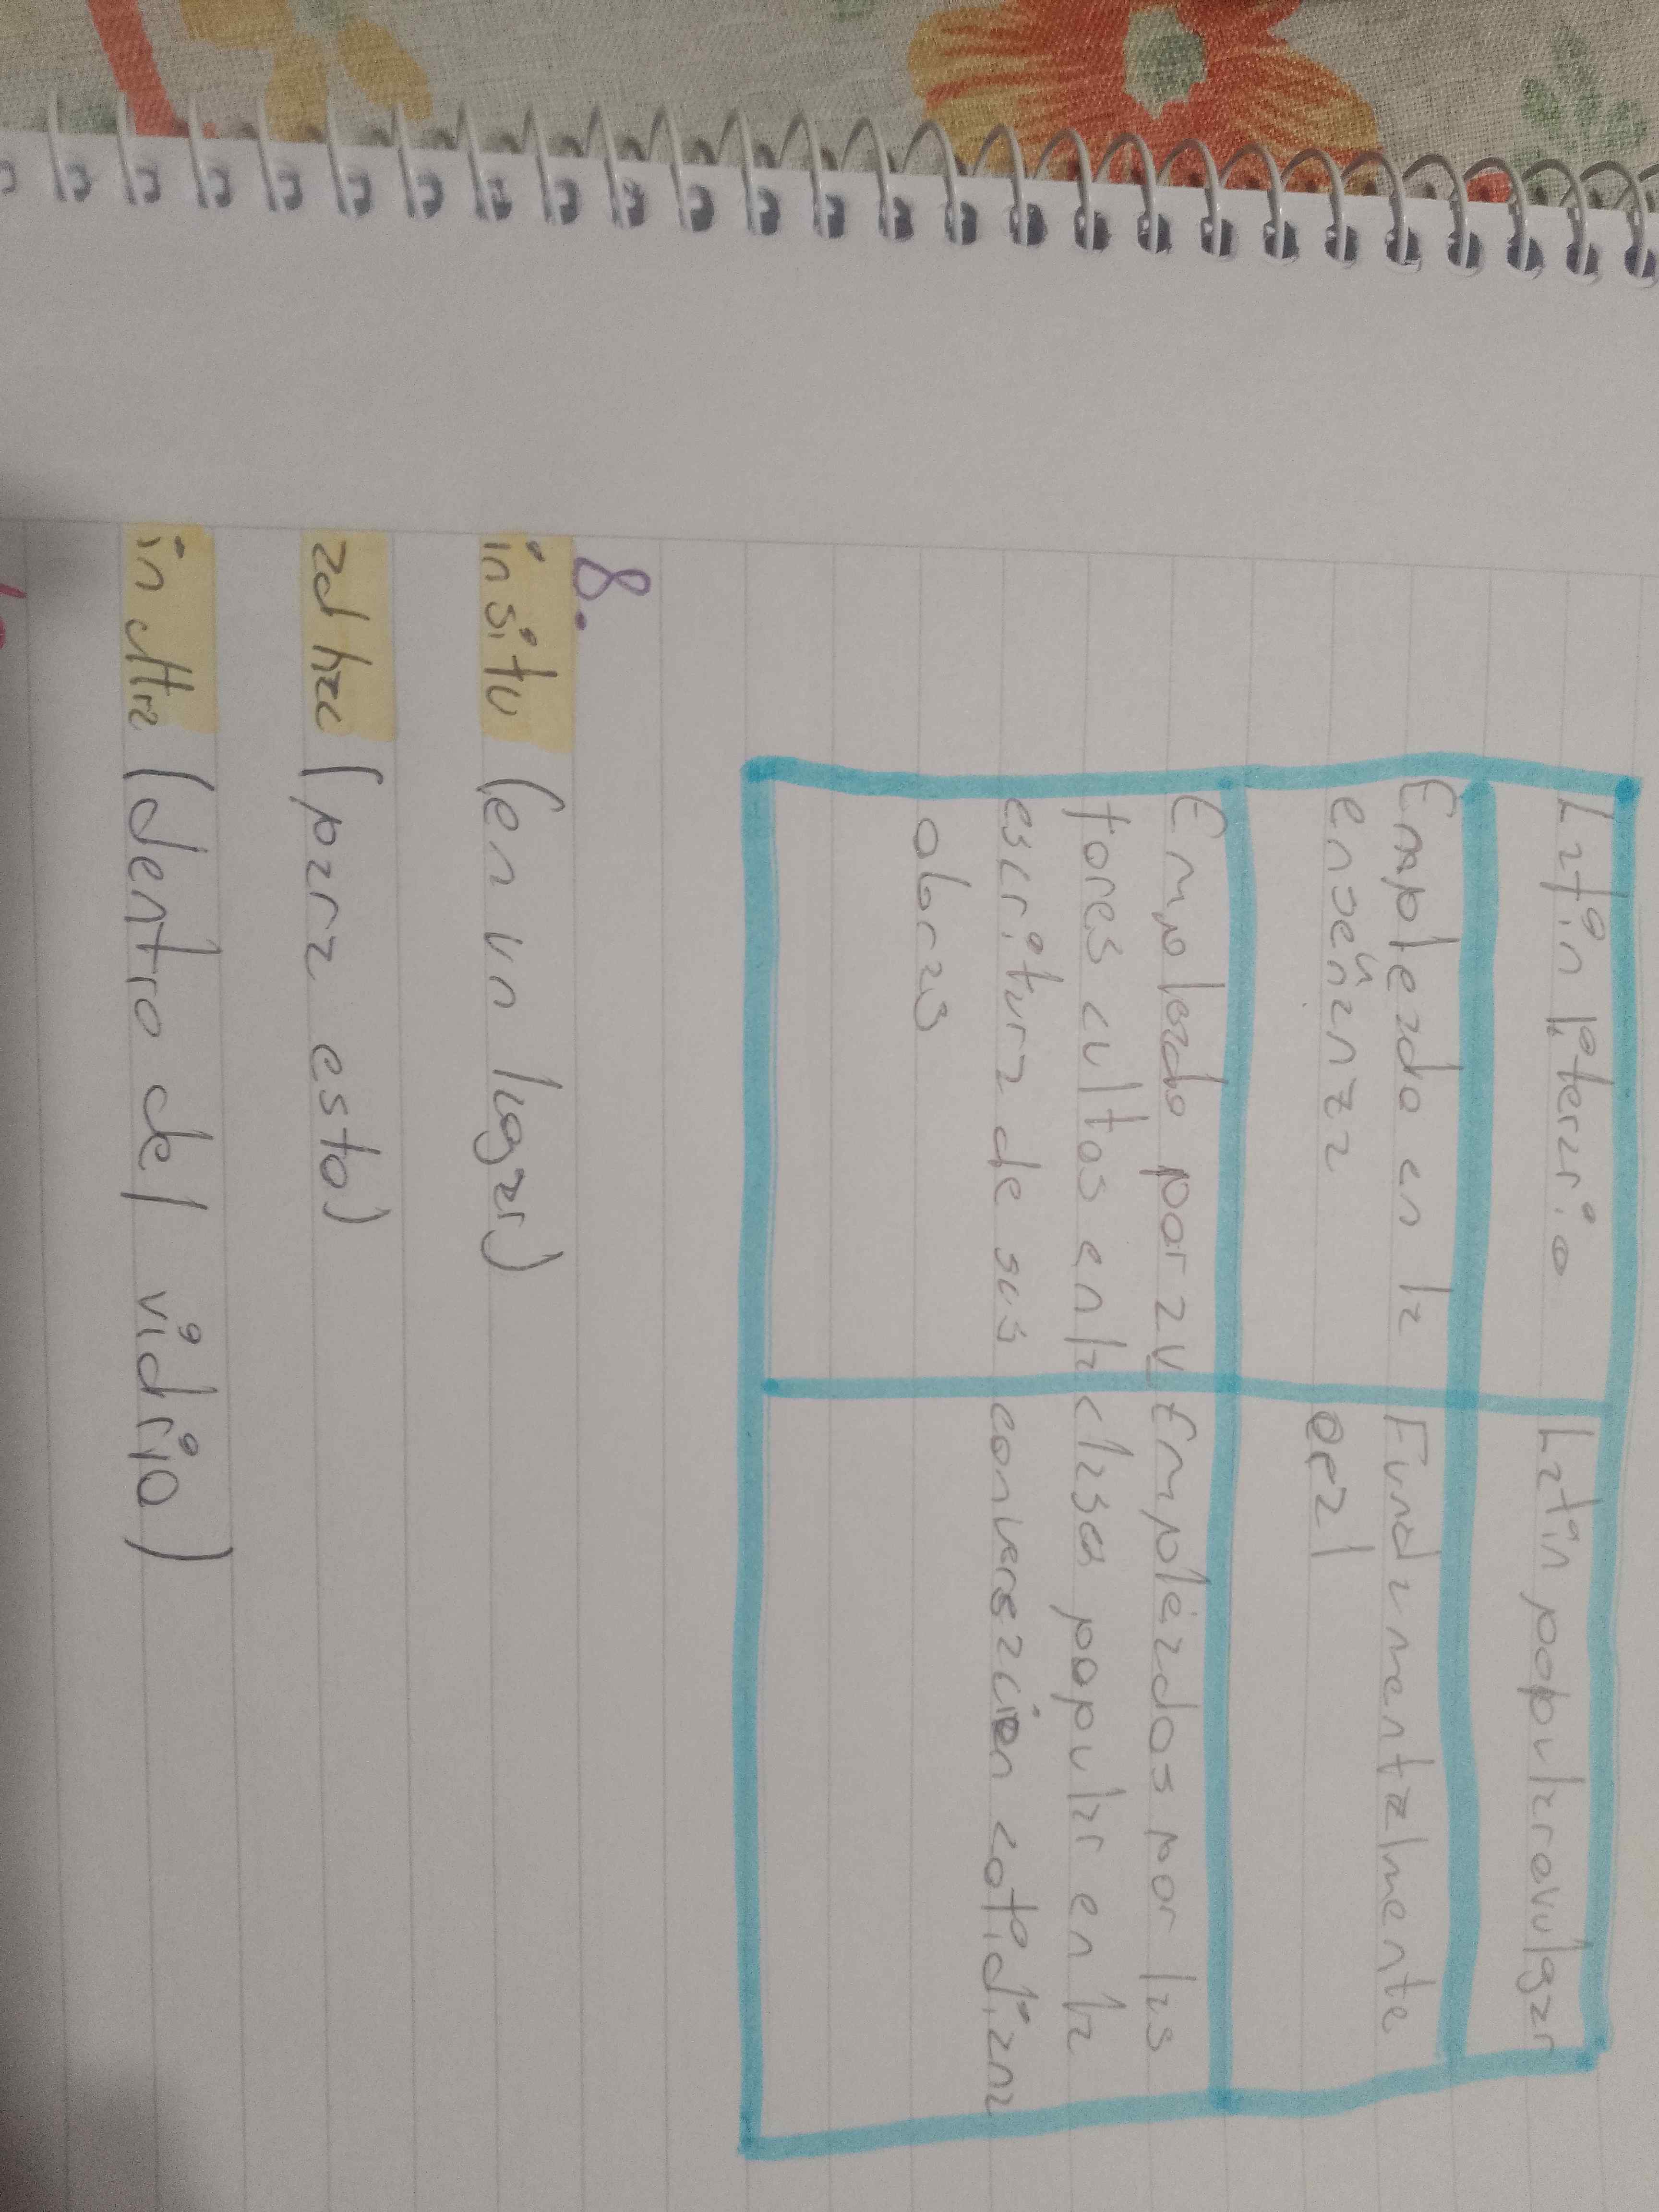 Latin literario
Latin popular o vulgar
Empleado en la
enseñanza
Fundamentalmente
oral
Empleado por au
tores cultos en la
escritura de sus
obras
Empleados por las
clases popular en la
conversacion cotidiana
8.
in situ (en un lugar)
ad hac (para esto)
(dentro del vidrio)